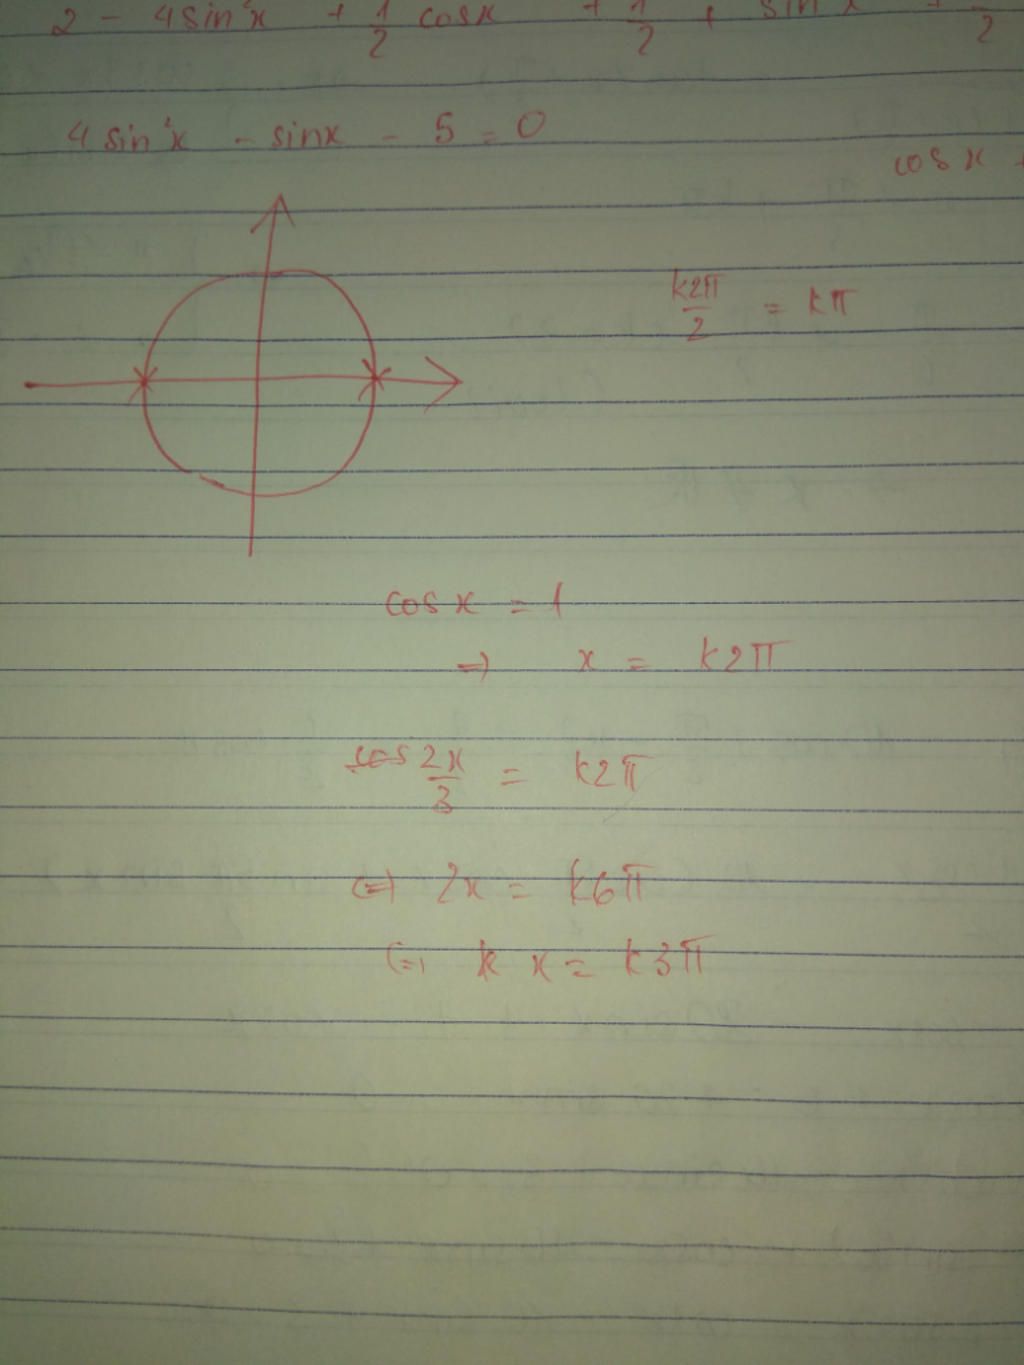 2 - 4sin²x + 1/2 cosx + 1/2 + sin x + /2
4sin²x - sinx - 5 = 0
cosx +
k2π/2 = kπ
cosx = 1
=) x = k2π
cos 2x/3 = k2π
(=) 2x = k6π
(=) k x = k3π